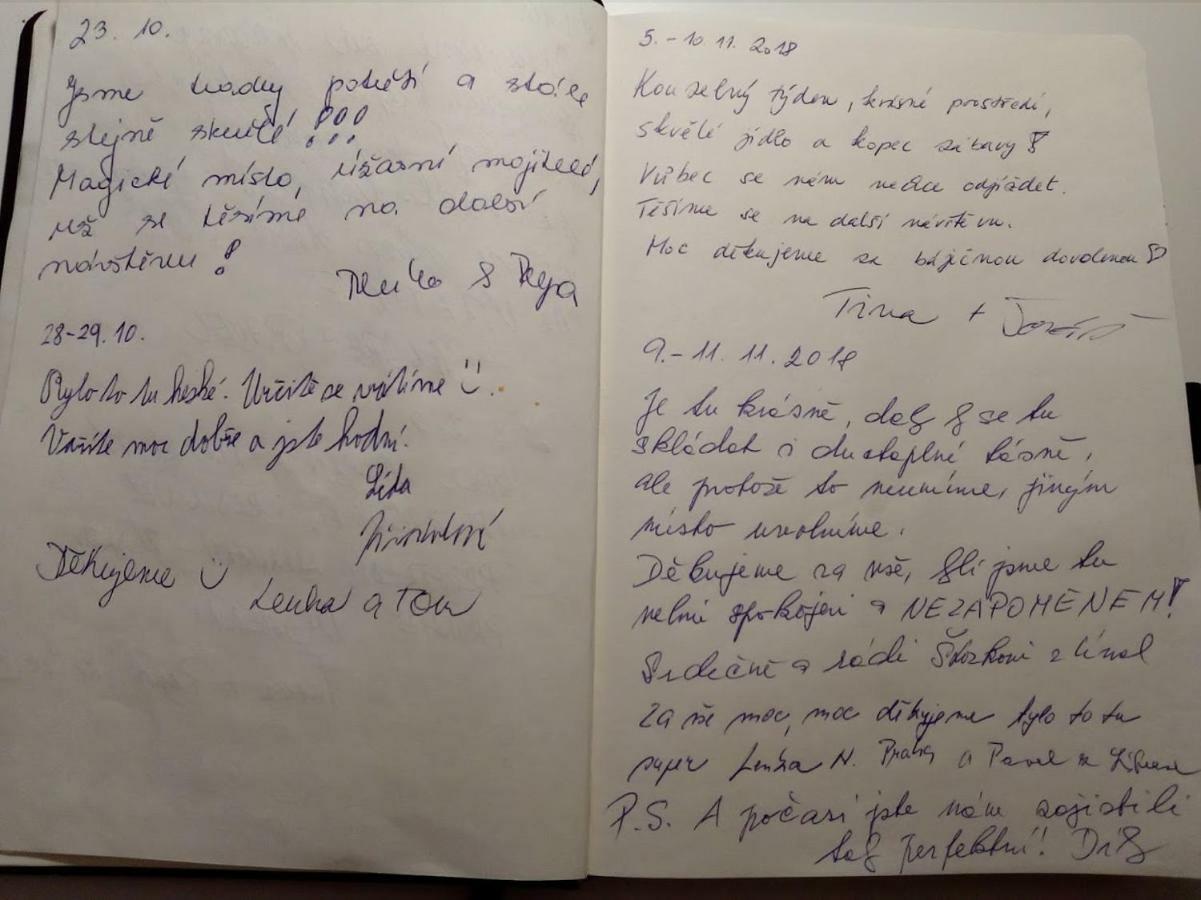 23. 10.
Jsme tady potřetí a stále
stejně skvělé!!!
Magické místo, úžasní majitelé,
už se těšíme na další
návštěvu!
28-29. 10.
Bylo to tu hezké. Určitě se vrátíme :).
Vaříte moc dobře a jste hodní.
Lída
Děkujeme :)
Lenka a Tom
5. - 10. 11. 2018
Kouzelný týden, krásné prostředí,
skvělé jídlo a kopec zábavy!
Vůbec se nám nechce odjíždět.
Těšíme se na další návštěvu.
Moc děkujeme za báječnou dovolenou
Tina +
9. - 11. 11. 2018
Je tu krásně, daly by se tu
skládat i duchaplné básně,
ale protože to neumíme, jiným
místo uvolníme.
Děkujeme za vše, byli jsme tu
velmi spokojeni a NEZAPOMENEM!
Srdečně a rádi z
Za vše moc, moc děkujeme bylo to tu
super Lenka N. Praha a Pavel z
P.S. A počasí jste nám zajistili
taky perfektní! Díky